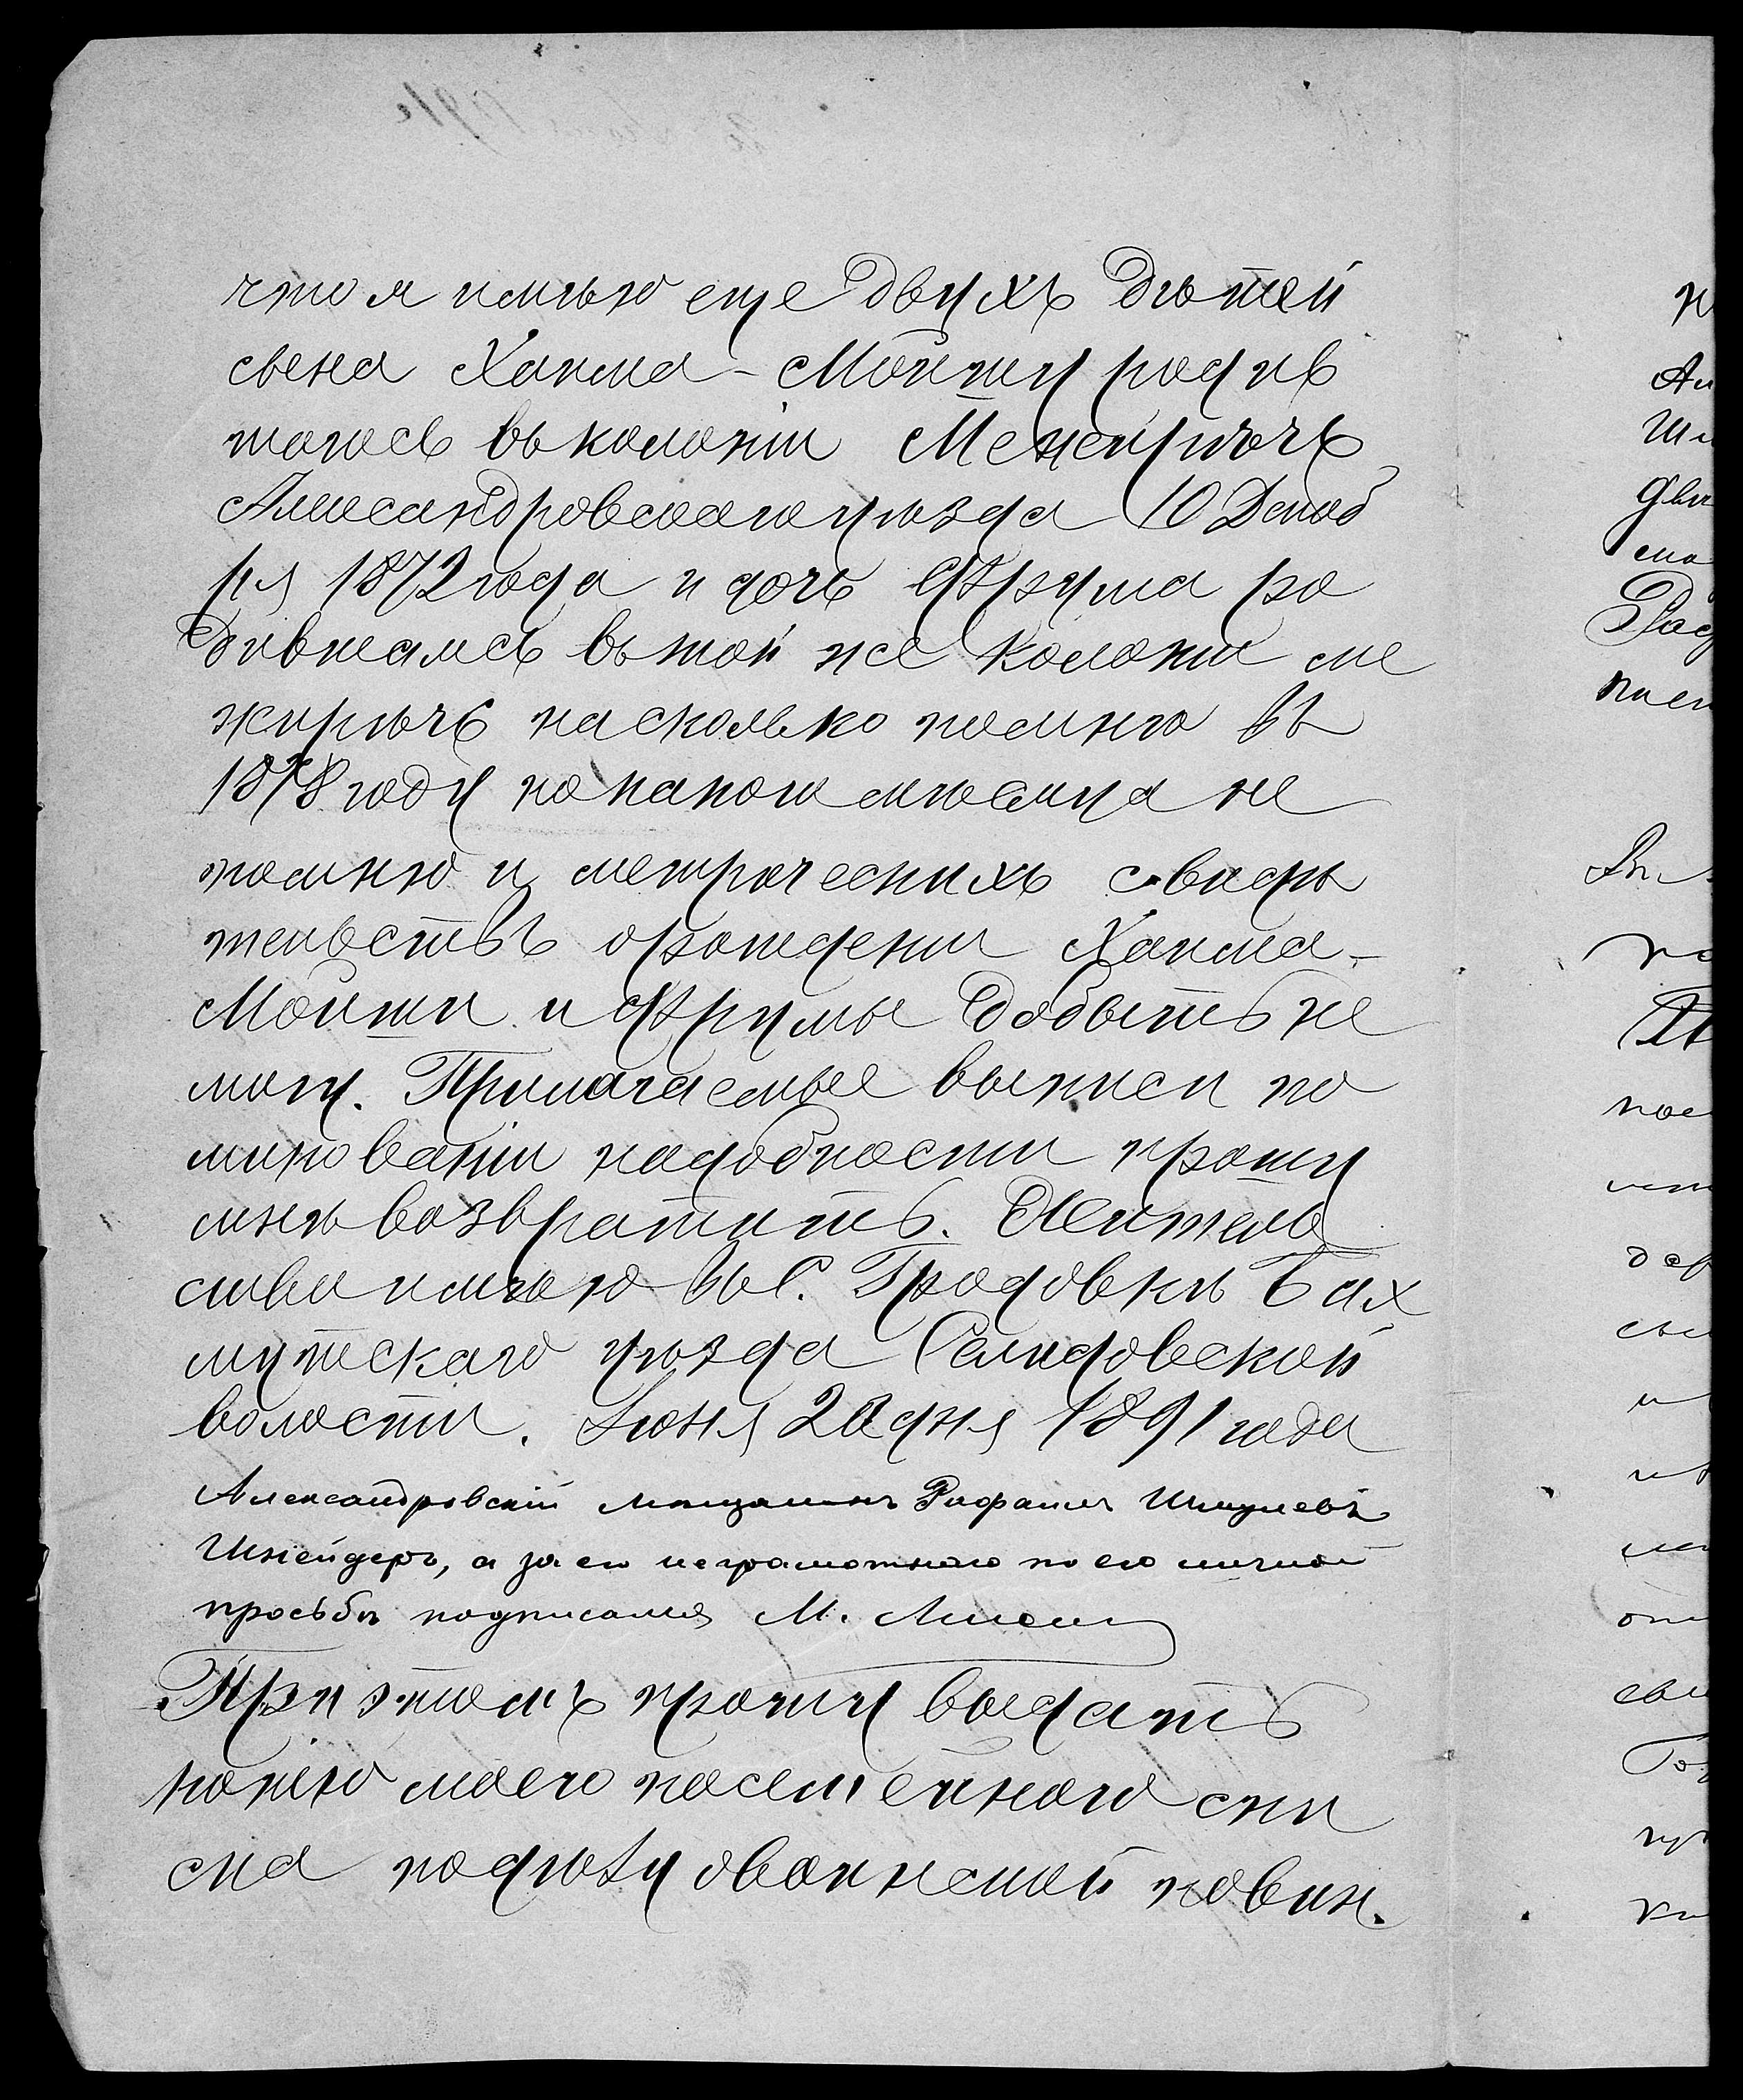 что я имѣю еще двухъ дѣтей
сына Хаима-Мойшу родив
шогось въ колоніи Межеирѣчь
Александровскаго уѣзда 10 Декаб
ря 1872 года и дочь Фрума ро
дившаясь въ той же колоніи ме
жирѣчь насколько помню въ
1878 году но какого мѣсяца не
помню и метрическихъ свидѣ
тельствъ орождении Хаима-
Мойши и Фрумы добыть не
могу. Прилагаемые выписи по
миновании надобности прошу
мнѣ возвратить. Жительс
ство имѣю въ С. Гродовкѣ Бах
мутскаго уѣзда Селидовской
волости. Іюня дня 1891 года
Александровскій мѣщанинъ Рафаилъ Шмулевъ
Шнейдеръ, а за его неграмотного по его личной
просьбѣ подписался М.
При этомъ прошу выдать
копію моего посемейнаго спи
ска подлѣзу овоинской повин.